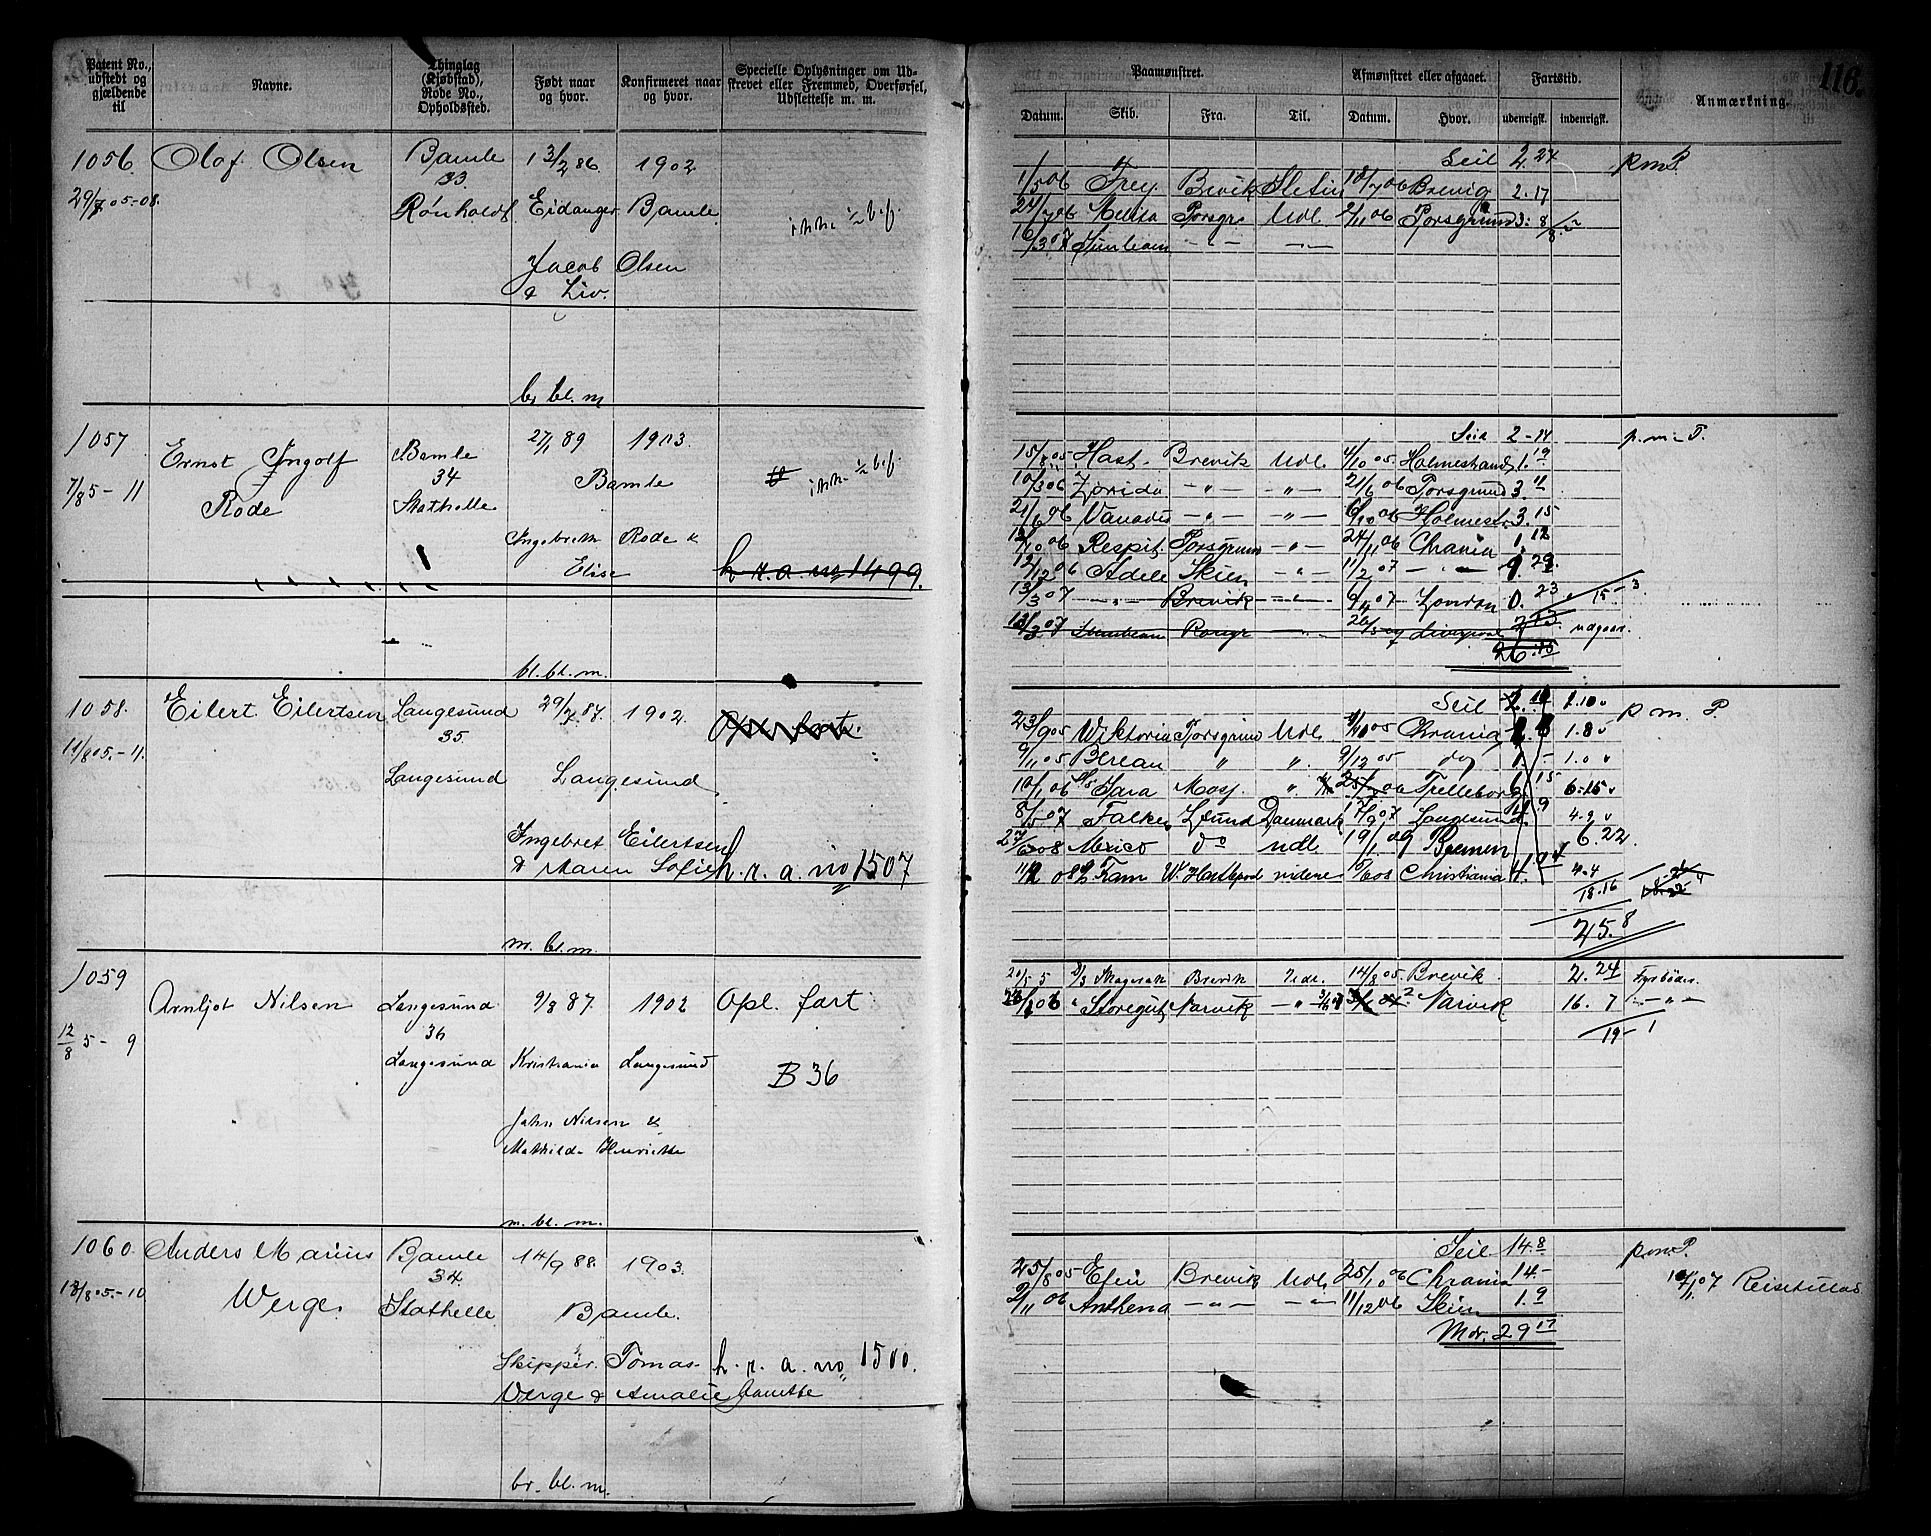 116.
Patent No., udstedt og gjældende til
Navne.
Thinglag (Kjøbstad), Rode No., Opholdssted.
Født naar og hvor.
Konfirmeret naar og hvor.
Specielle Oplysninger om Udskrevet eller Fremmed, Overførsel, Udslettelse m. m.
Paamønstret.
Afmønstret eller afgaaet.
Fartstid.
Anmærkning.
Datum. Skib. Fra. Til. Datum. Hvor. udenrigsk. indenrigsk.
1056. Olaf Olsen Bamle 13/2 86 1902
33
29/7 05-08. Rönholdt Eidanger Bamle
Jacob Olsen
& Liv.
br. bl. m
Seil 2.27 p m P.
1/5 06 Frey. Brevik Stetin 18/7 06 Brevig 2.17
24/7 06 Porsgr. Udl. 2/11 06 Porsgrund 3. 8
16/3 07 Sunbeam - " - - " -
1057 Ernst Ingolf Bamle 27/1 89 1903.
34 Bamle
7/8 5-11 Rode Stathelle
Ingebreth Rode &
Elise h. r. a. no 1499.
bl. bl. m.
Seil 2-14 p. m. P.
15/8 05 Hast. Brevik Udl. 4/10 05. Holmestrand 1.19
10/3 06 Zorida - " - - " - 21/6 06 Porsgrund 3. 11
21/6 06 Vanadis - " - - " - 6/10 06 Holmestr. 3. 15
12/10 06 Respit. Porsgrund - " - 24/11 06 Chrania 1. 12
12/12 06 Adele Skien - " - 11/2 07 - " - 1. 29.
13/3 07 - " - Brevik - " - 6/4 07 London 0. 23
13/3 07 Sunbeam Porsgr. Liverpool udgaar.
26.15
1058. Eilert Eilertsen Langesund 29/7. 87. 1902.
35.
11/8 05.-11. Langesund Langesund
Ingebret Eilertsen
& Maren Sofie h. r. a. no 1507
m. bl. m.
Seil 2.10 p m. P.
23/9 05 Wiktoria Porsgrund Udl. Chrania 1.8
9/11 05 Berean " " 9/12 05 do 1.0
10/1 06 Sara Moss. " Trelleborg 6.15
8/5 07 Falken L.sund Danmark 17/9 07 Langesund 4.9
27/6 08 Mexico do udl 19/1 09 Bremen 6.22.
Fram W. Hartlepool videre Christiania 4.4
18.16
25.8
1059 Arnljot Nilsen Langesund 9/3 87. 1902 Opl. fart
36
12/8 5-9 Langesund Kristiania Langesund B 36
John Nilsen &
Mathilde Henriette
m. bl. m.
20/5 5 D/S Skagerak Brevik Udl. 14/8 05. Brevik. 2.24 Fyrböder.
" Storegut Narvik - " - Narvik 16. 7 - " -
19-1
1060. Anders Marius Bamle 14/9 88. 1903.
34.
12/8 05.-10 Werge. Stathelle Bamle.
Skipper. Tomas h. r. a. no 1500.
Verge & Amalie Janette
br. bl. m.
Seil 14.8 p m. P.
25/8 05 Brevik Udl. 25/10 06 Chrania 14.-
2/11 06 Anthena - " - - " - 11/12 06 Skien 1.9
Mdr. 29 17